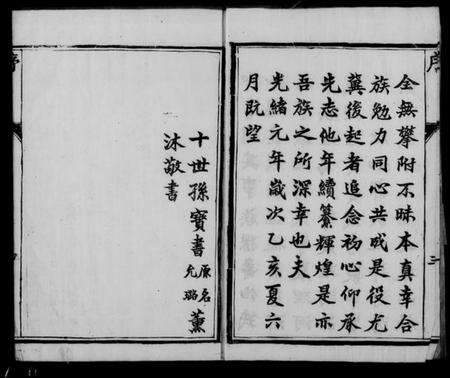 序
三
全無攀附不昧本真幸合
族勉力同心共成是役尤
冀後起者追念初心仰承
先志他年續纂輝煌是亦
吾族之所深幸也夫
光緒元年歲次乙亥夏六
月既望
十世孫寶書原名允璐薰
沐敬書